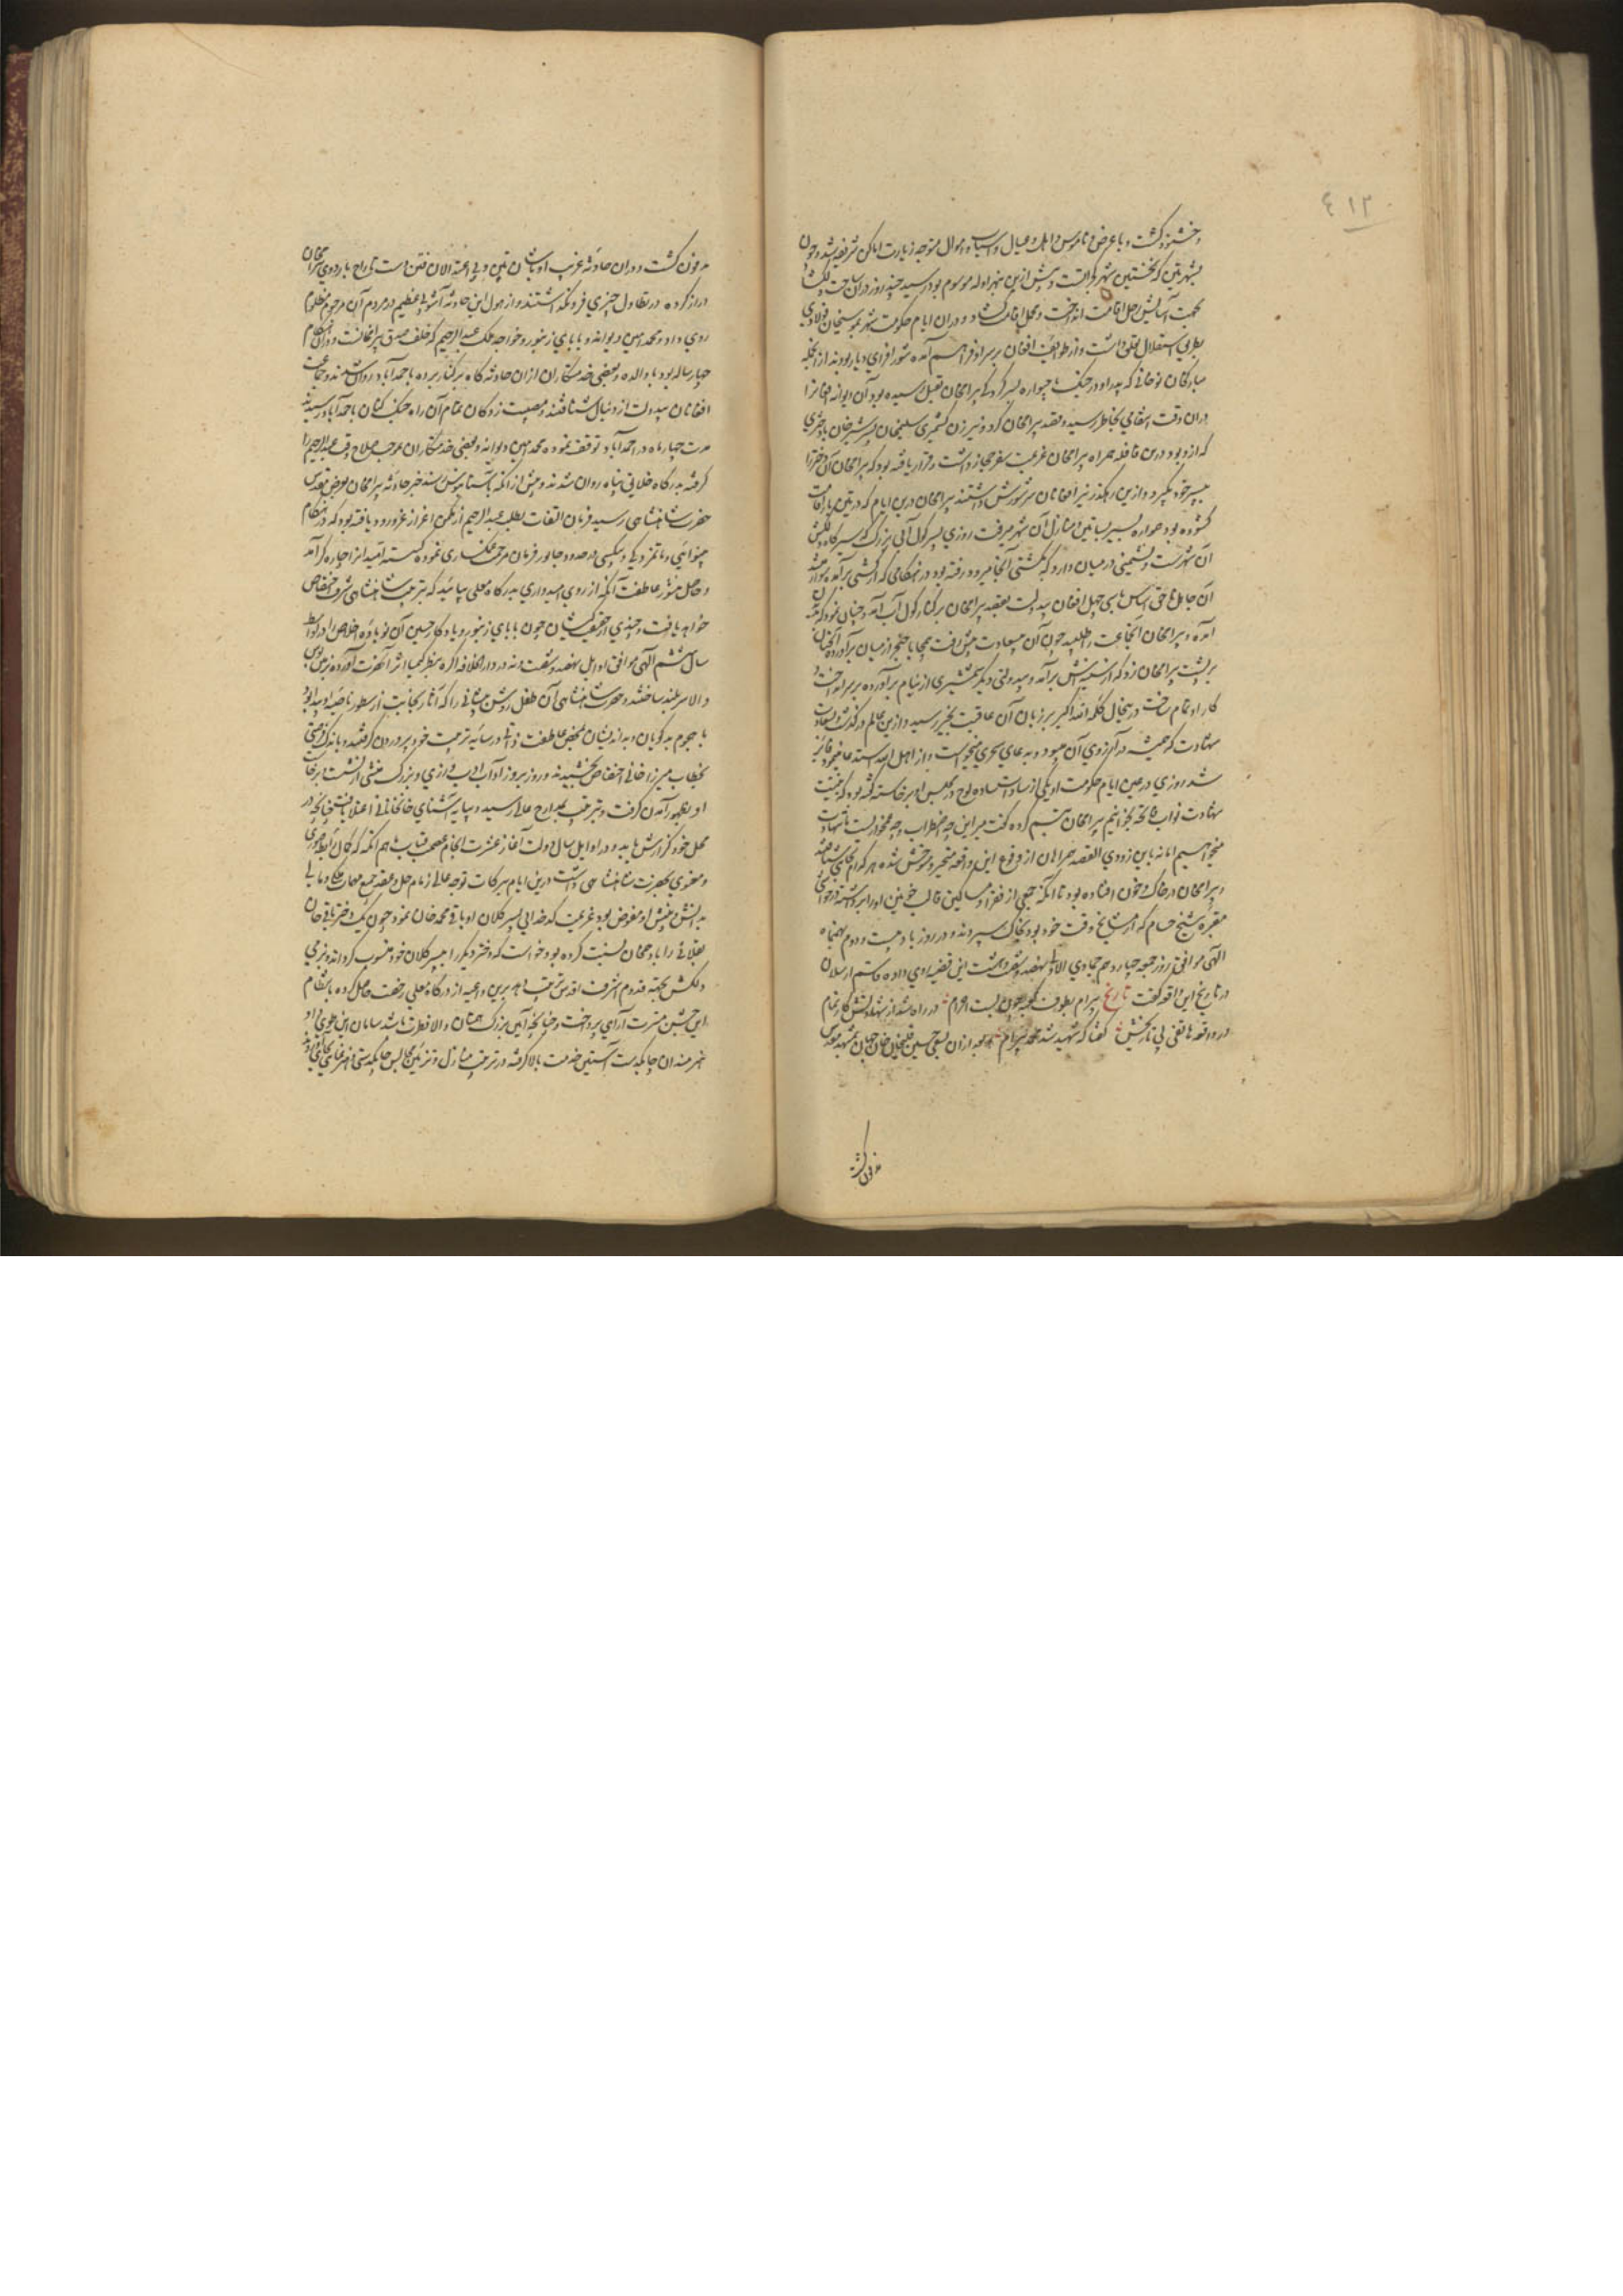 ٤١٣
و خشنود گشت و با عرض و ناموس و اهل و عیال و اسباب و اموال متوجه زیارت اماکن شریفه شد و چون
بشهر پتن که نخستین شهر گجراتست و پیش ازین بنهرواله موسوم بود رسید چند روز دران ساحت دلگشا
بجهت آسایش رحل اقامت انداخت و دران ایام حکومت شهر بموسیخان فولادی
بطریق استقلال تعلق داشت و از طوایف افغان بر سر او فراهم آمده شور افزای دیار بودند از انجمله
مبارکخان نوحانی که پدر او در جنگ ماچیواره بسرکردگی بیرامخان بقتل رسیده بود آن دیوانه افغانرا
دران وقت انتقامی بخاطر رسیده قصد بیرامخان کرد و نیز زن کشمیری سلیمخان پسر شیرخان با دختری
که ازو بود درین قافله همراه بیرامخان عزیمت سفر حجاز داشت و قرار یافته بود که بیرامخان آن دختر را
بپسر خود بگیرد و ازین رهگذر نیز افغانان سر شورش داشتند بیرامخان درین ایام که در پتن بار اقامت
گشوده بود همواره بسیر بساتین و منازل آن شهر میرفت روزی بسیر کول آبی بزرگ که سیرگاه دلکش
آن شهرست و نشیمنی در میان دارد که بکشتی آنجا میرود رفته بود در هنگامی که از کشتی برآمده سوار میشد
آن جاهل ناحق شناس با سی چهل افغان بیدولت بقصد بیرامخان بر کنار کول آب آمد و چنان نمود که بدیدن
آمده و بیرامخان آنجماعت را طلبید چون آن بیسعادت پیش رفت بیمحابا خنجر از میان برآورده آنچنان
بر پشت بیرامخان زد که از سینه‌اش برآمد و بیدولتی دیگر شمشیری از نیام برآورده بر سر انداخت و
کار او تمام ساخت در نیحال کلمه الله اکبر بر زبان آن عاقبت بخیر رسید و ازین عالم درگذشت و بسعادت
شهادت که همیشه در آرزوی آن میبود و بدعای سحری میخواست و از اهل الله استدعا مینمود فایز
شد روزی در عین ایام حکومت او یکی از سادات ساده لوح در مجلس او برخاسته گفته بود که به نیت
شهادت نواب فاتحه بخوانیم بیرامخان تبسم کرده گفت میر این چه اضطراب و چه غمخواریست ما شهادت
میخواهیم اما نه باین زودی القصه همراهان از وقوع این واقعه متحیر و متوحش شده هر کدام بجائی شتافتند
و بیرامخان در خاک و خون افتاده بود تا آنکه جمعی از فقرا و مساکین قالب خونین او را برداشته در حوالی
مقبره شیخ حسام که از مشایخ وقت خود بود بخاک سپردند و در روز باد بیست و دوم بهمنماه
الهی موافق روز جمعه چهاردهم جمادی الاولی نهصد و شصت و هشت این قضیه روی داده قاسم ارسلان
در تاریخ این واقعه گفت تاریخ بیرام بطوف کعبه چون بست احرام در راه شد از شهادتش کار تمام
در واقعه هاتفی پی تاریخش گفتا که شهید شد محمد بیرام بعد از ان بسعی حسین قلیخان خان جهان بمشهد مقدس
مدفون گشت
مدفون گشت و دران حادثه غریب اوباشان پتن و بی اعتدالان فتن دست تاراج باردوی بیرامخان
دراز کرده در تطاول چیزی فرو نگذاشتند و از هول این حادثه آشوب عظیم در مردم آن مرحوم مظلوم
روی داد و محمد امین دیوانه و بابای زنبور و خواجه ملک عبدالرحیم که خلف صدق بیرامخانست و دران هنگام
چهار ساله بود با والده و بعضی خدمتگاران ازان حادثه گاه بر کنار برده باحمدآباد روان شدند و جماعت
افغانان بیدولت از دنبال شتافتند و مصیبت زدگان تمام آن راه جنگ کنان باحمدآباد رسیدند
مدت چهار ماه در احمدآباد توقف نموده محمد امین دیوانه و بعضی خدمتگاران بموجب صلاح وقت عبدالرحیم را
گرفته بدرگاه خلایق پناه روان شدند و پیش از انکه بآستانبوس رسند خبر حادثه بیرامخان بعرض مقدس
حضرت شاهنشاهی رسید فرمان التفات بطلب عبدالرحیم از مکمن اعزاز عز ورود یافته بود که در هنگام
بینوائی و ماتمزدگی و بیکسی در حدود جالور فرمان مرحمت غمگساری نموده گسسته امید انرا چاره گر آمد
و حاصل منشور عاطفت آنکه از روی امیدواری بدرگاه معلی بیاید که بتربیت شاهنشاهی شرف اختصاص
خواهد یافت و چندی از حقیقت کیشان چون بابای زنبور و یادگار حسین آن نوباوه اخلاص را در اواسط
سال ششم الهی موافق اوایل نهصد و شصت و نه در دارالخلافه آگره بنظر کیمیا اثر آنحضرت آورده بزمین بوس
والا سر بلند ساختند و حضرت شاهنشاهی آن طفل روشن پیشانی را که آثار نجابت از سطور ناصیه او پیدا بود
با هجوم بدگویان و بداندیشان بمحض عاطفت ذاتی در سایه تربیت خود پروردن گرفتند و باندک فرصتی
بخطاب میرزا خانی اختصاص بخشیدند و روز بروز آداب ادب طرازی و بزرگ منشی از نشست و برخاست
او بظهور آمدن گرفت و بترتیب بمدارج عالی رسید و بپایه آشنای خانخانانی اعتلا یافت چنانچه در
محل خود گزارش یابد و در اوایل سال دولت آغاز عشرت انجام منعم خان هم آنکه که کمال رابطه صوری
و معنوی بحضرت شاهنشاهی داشت درین ایام ببرکات توجه عالی زمام حل و عقد جمیع مهمات ملکی و مالی
بدانش و بینش او مفوض بود عزیمت کدخدایی پسر کلان او باقی محمد خان نمود چون یک دختر باقی خان
بقلانی را بادهم خان نسبت کرده بود خواست که دختر دیگر را بپسر کلان خود منسوب گرداند و بزمی
دلکش بجهت قدوم اشرف اقدس ترتیب دهد برین داعیه از درگاه معلی رخصت حاصل کرده بانتظام
این جشن مسرت آرای پرداخت و چنانچه آئین بزرگ همتان والا فطرت باشد سامان این طوی داد
هنرمندان چابکدست آستین خدمت بالا گرفته در ترتیب منازل و تزئین مجالس چابکدستی و هنرنمائی بکار بردند